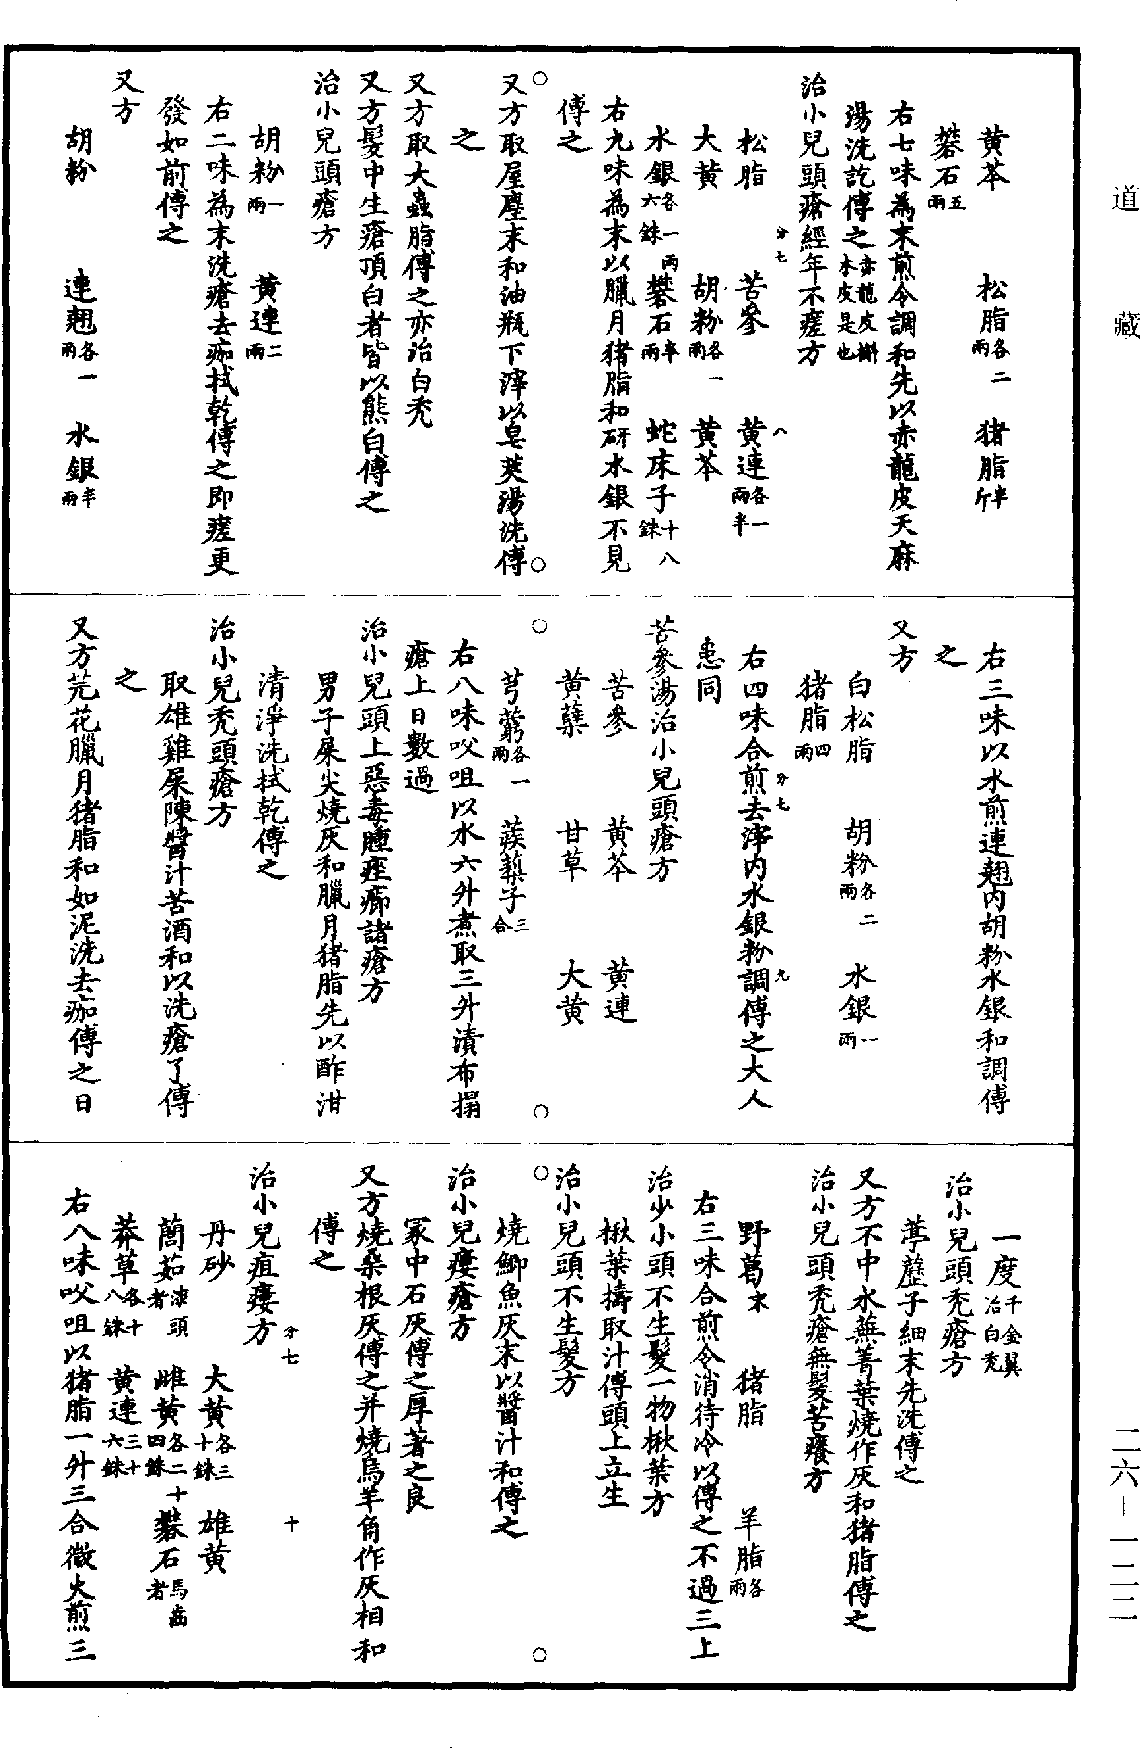 道藏
黃芩　松脂各二兩　猪脂半斤
礬石五兩
右七味為末煎令調和先以赤龍皮天麻
湯洗訖傅之赤龍皮槲木皮是也
治小兒頭瘡經年不瘥方
松脂　苦參　黃連各一兩半
大黃　胡粉各一兩　黃芩
水銀各一兩六銖　礬石半兩　蛇床子十八銖
右九味為末以臘月猪脂和研水銀不見
傅之
又方取屋塵末和油瓶下滓以皂莢湯洗傅
之
又方取大蟲脂傅之亦治白禿
又方髮中生瘡頂白者皆以熊白傅之
治小兒頭瘡方
胡粉一兩　黃連二兩
右二味為末洗瘡去痂拭乾傅之即瘥更
發如前傅之
又方
胡粉　連翹各一兩　水銀半兩
右三味以水煎連翹內胡粉水銀和調傅
之
又方
白松脂　胡粉各二兩　水銀一兩
猪脂四兩
右四味合煎去滓內水銀粉調傅之大人
患同
苦參湯治小兒頭瘡方
苦參　黃芩　黃連
黃蘗　甘草　大黃
芎藭各一兩　蒺藜子三合
右八味㕮咀以水六升煮取三升漬布搨
瘡上日數過
治小兒頭上惡毒腫痤癤諸瘡方
男子屎尖燒灰和臘月猪脂先以酢泔
清淨洗拭乾傅之
治小兒禿頭瘡方
取雄雞屎陳醬汁苦酒和以洗瘡了傅
之
又方芫花臘月猪脂和如泥洗去痂傅之日
一度千金翼治白禿
治小兒頭禿瘡方
葶藶子細末先洗傅之
又方不中水蕪菁葉燒作灰和猪脂傅之
治小兒頭禿瘡無髮苦癢方
野葛末　猪脂　羊脂各兩
右三味合煎令消待冷以傅之不過三上
治少小頭不生髮一物楸葉方
楸葉擣取汁傅頭上立生
治小兒頭不生髮方
燒鯽魚灰末以醬汁和傅之
治小兒瘻瘡方
冢中石灰傅之厚著之良
又方燒桑根灰傅之并燒烏羊角作灰相和
傅之
治小兒疽瘻方
丹砂　大黃各三十銖　雄黃
䕡茹漆頭者　雌黃各二十四銖　礬石馬齒者
莽草各十八銖　黃連三十六銖
右八味㕮咀以猪脂一升三合微火煎三
二六－一二二